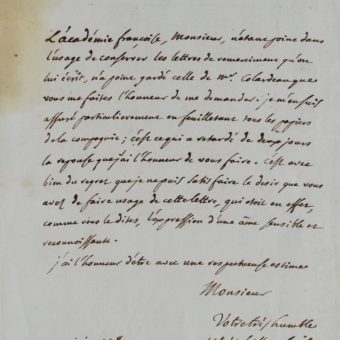 L'académie françoise, Monsieur, n'étant point dans
l'usage de conserver les lettres de remerciment qu'on
lui écrit, n'a point gardé celle de mr. Colardeau que
vous me faites l'honneur de me demander. je m'en suis
assuré particulierement en feuilletant tous les papiers
de la compagnie; c'est ce qui a retardé de deux jours
la reponse que j'ai l'honneur de vous faire. c'est avec
bien du regret que je ne puis satisfaire le desir que vous
avez de faire usage de cette lettre, qui étoit en effet,
comme vous le dites, l'expression d'une âme sensible et
reconnoissante.
j'ai l'honneur d'etre avec une respectueuse estime
Monsieur
Votre très humble